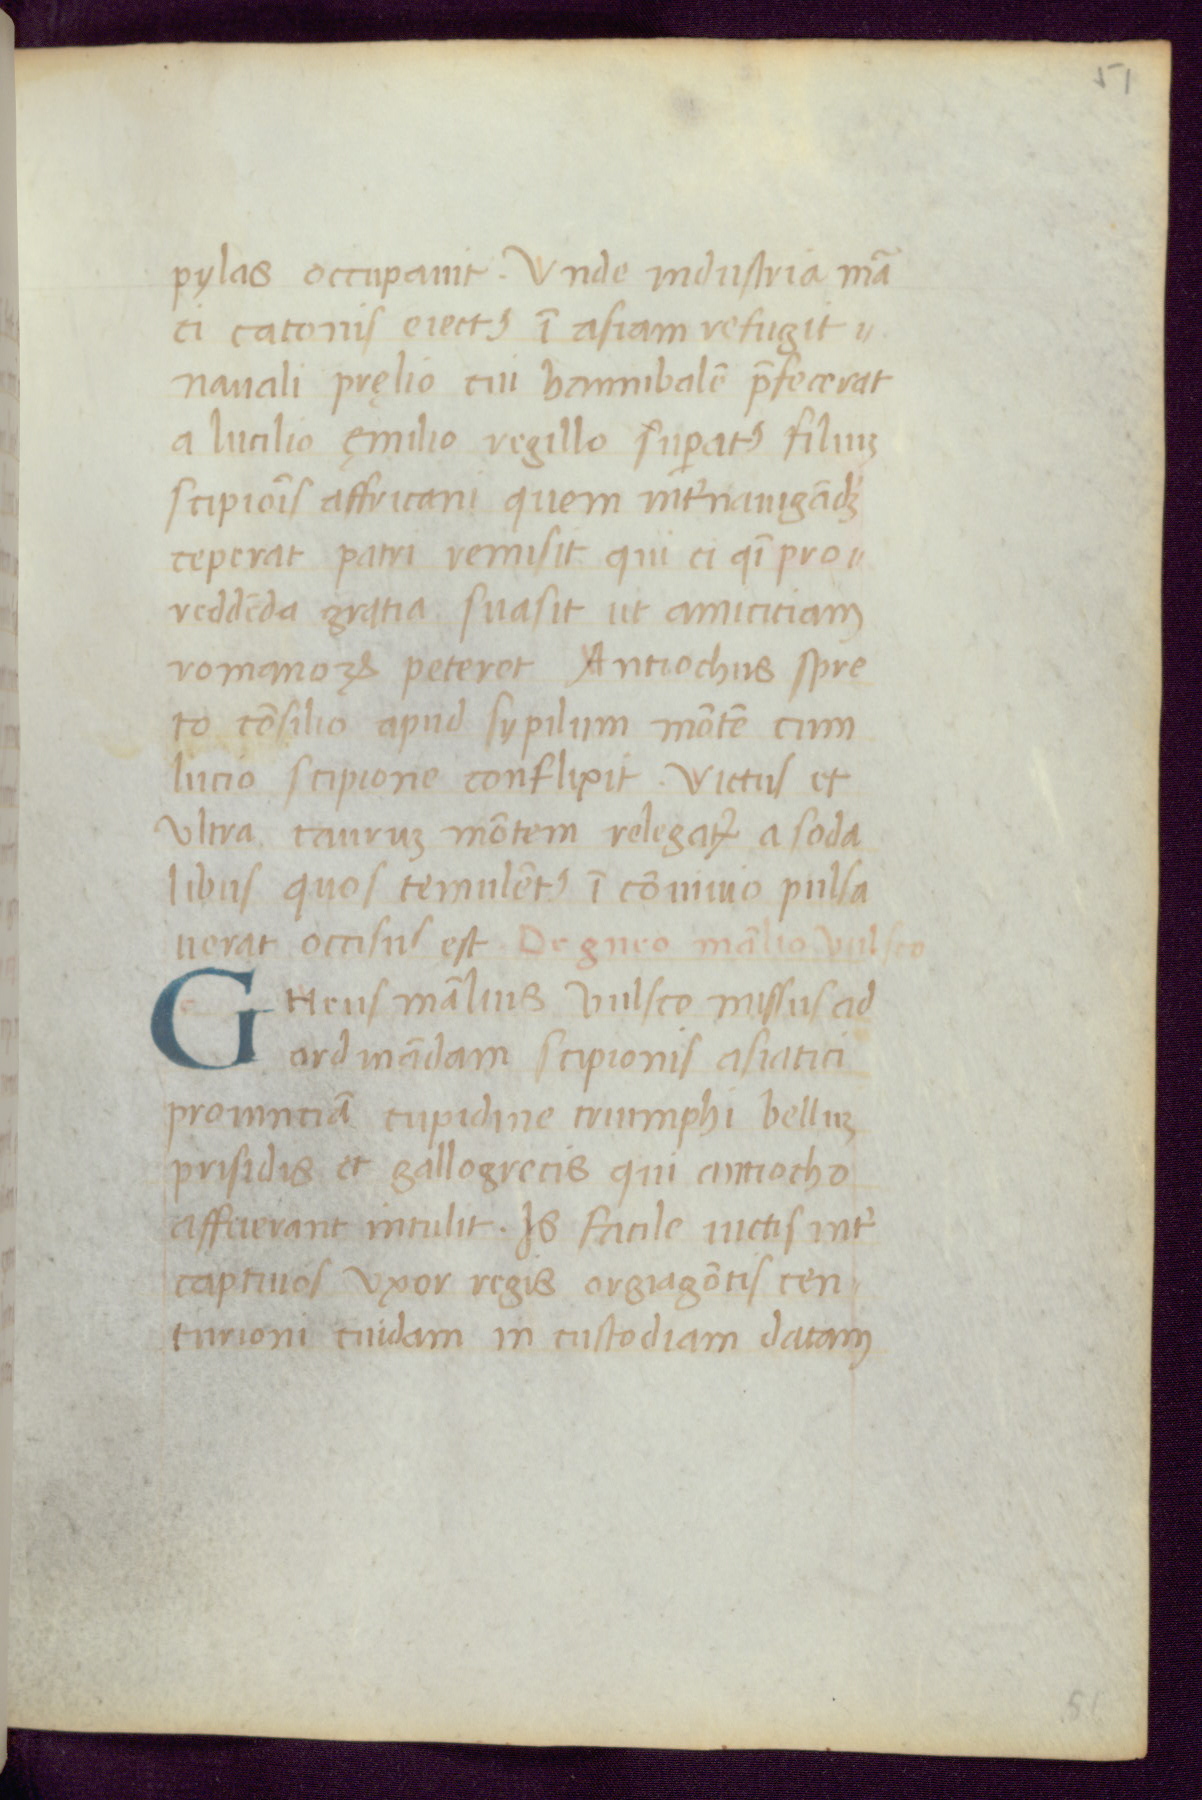 51
pylas occupauit. Vnde industria mā
ci catonis eiectꝰ ī asiam refugit
nauali pręlio cui hannibalē p̄fecerat
a lucilio ęmilio regillo suꝑatꝰ filiuꝫ
scipiōis affricani quem inter nauigādꝫ
ceperat patri remisit qui ei q̄i pro
reddēda gratia suasit ut amicitiam
romanoꝝ peteret Antiochus spre
to cōsilio apud sypilum mōtē cum
lucio scipione conflixit. Victus et
vltra tauruꝫ mōtem relegatꝰ a soda
libus quos temulētꝰ ī cōuiuio pulsa
uerat occisus est De gneo mālio vulsco
Gneus mālius Vulsco missus ad
ordinādam scipionis asiatici
prouinciā cupidine triumphi belluꝫ
prisidis et gallogrecis qui antiocho
affuerant intulit. Is facile uictis int̄
captiuos vxor regis orgiagōtis cen
turioni cuidam in custodiam datam
51